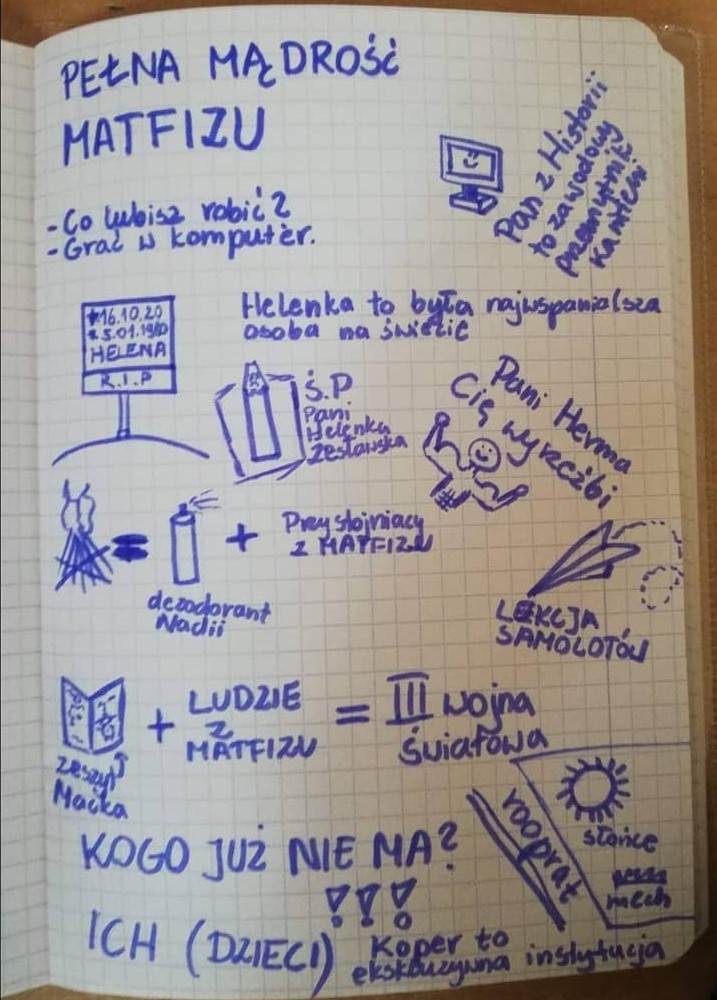 PEŁNA MĄDROŚĆ
MATFIZU
Pan z Historii
to zawodowy
przemytnik
kamieni
- Co lubisz robić?
- Grać w komputer.
*16.10.20
*5.01.1980
HELENA
R.I.P
Helenka to była najwspanialsza
osoba na świecie
Ś.P
Pani
Helenka
Zesławska
Pani Herma
Cię wyrzeźbi
=
+
Przystojniacy
z MATFIZU
dezodorant
Nadii
LEKCJA
SAMOLOTÓW
+
LUDZIE
Z
MATFIZU
=
III wojna
światowa
zeszyt
Maćka
rooprat
słońce
mech
KOGO JUŻ NIE MA?
!!!
ICH (DZIECI)
Koper to
ekskluzywna instytucja